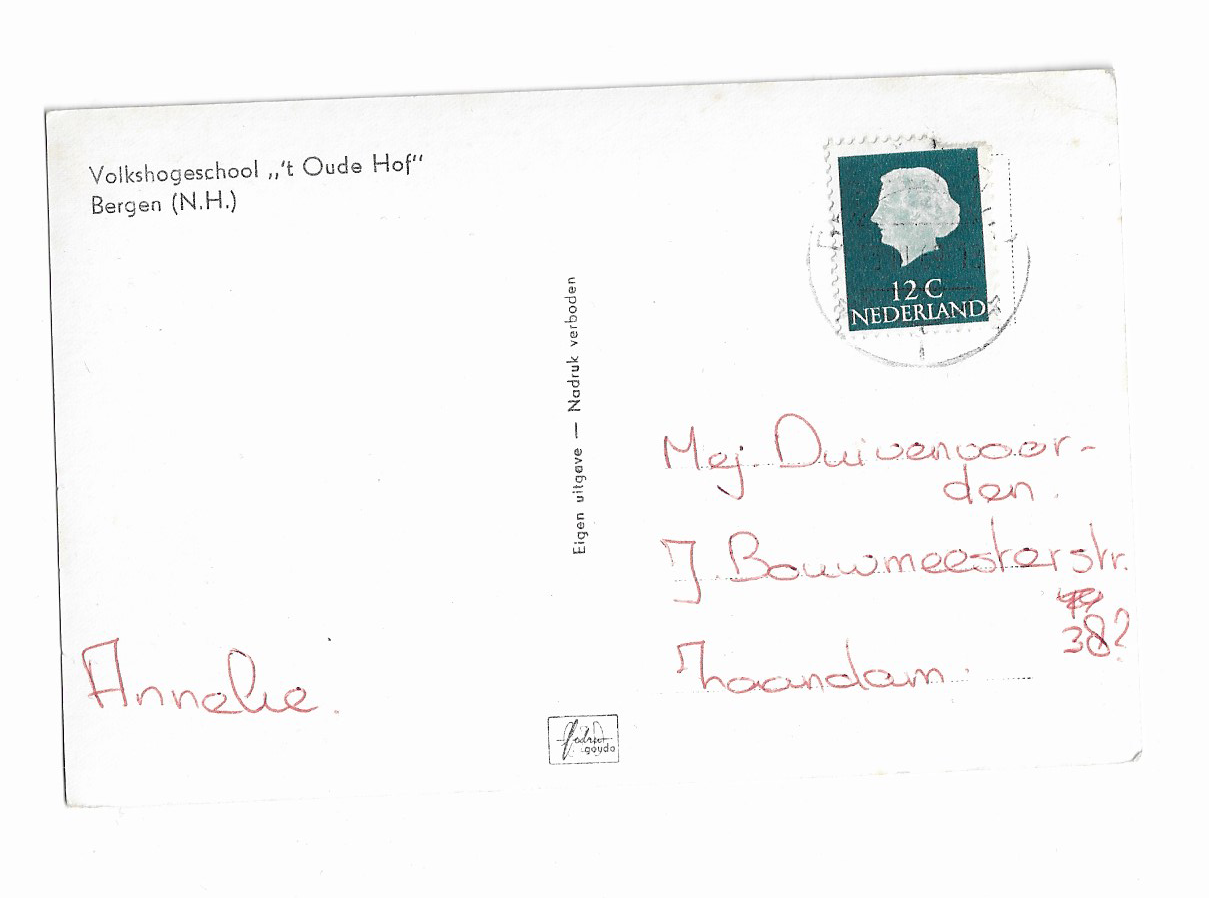 Volkshogeschool „'t Oude Hof"
Bergen (N.H.)
12 C
NEDERLAND
Eigen uitgave — Nadruk verboden
Mej. Duivenvoor-
den.
J. Bouwmeesterstr.
38?
Zaandam.
Annelie.
gouda